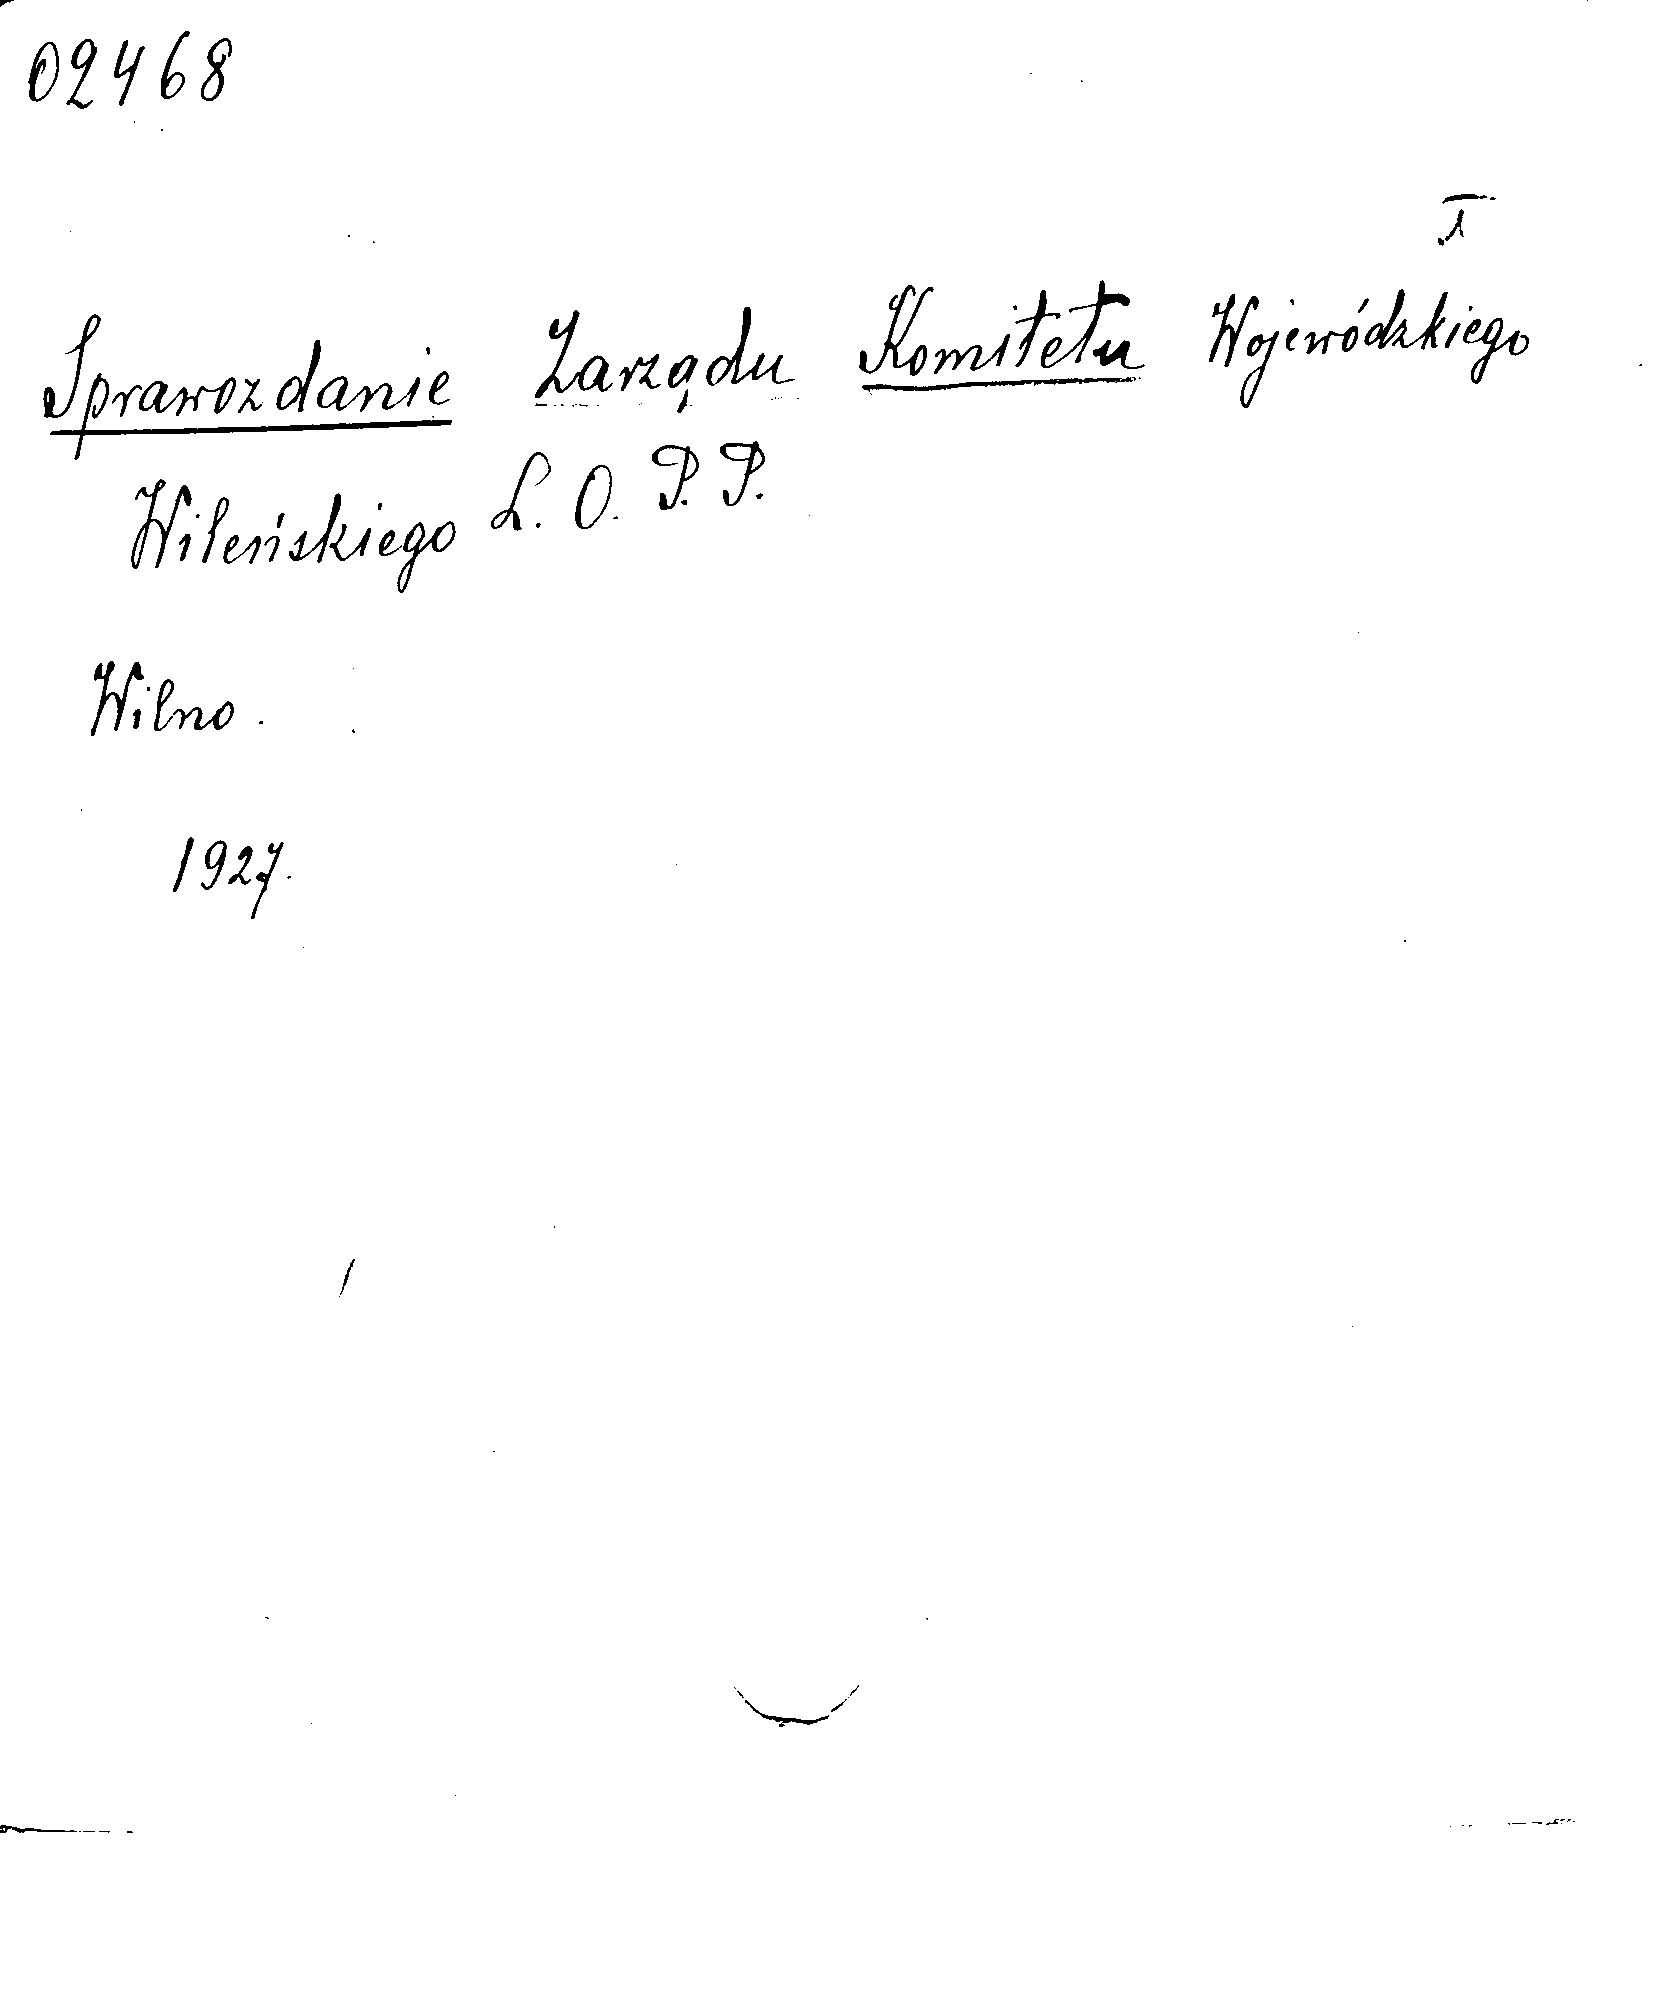 02468
I
Sprawozdanie Zarządu Komitetu Wojewódzkiego
Wileńskiego L. O. P. P.
Wilno.
1927.